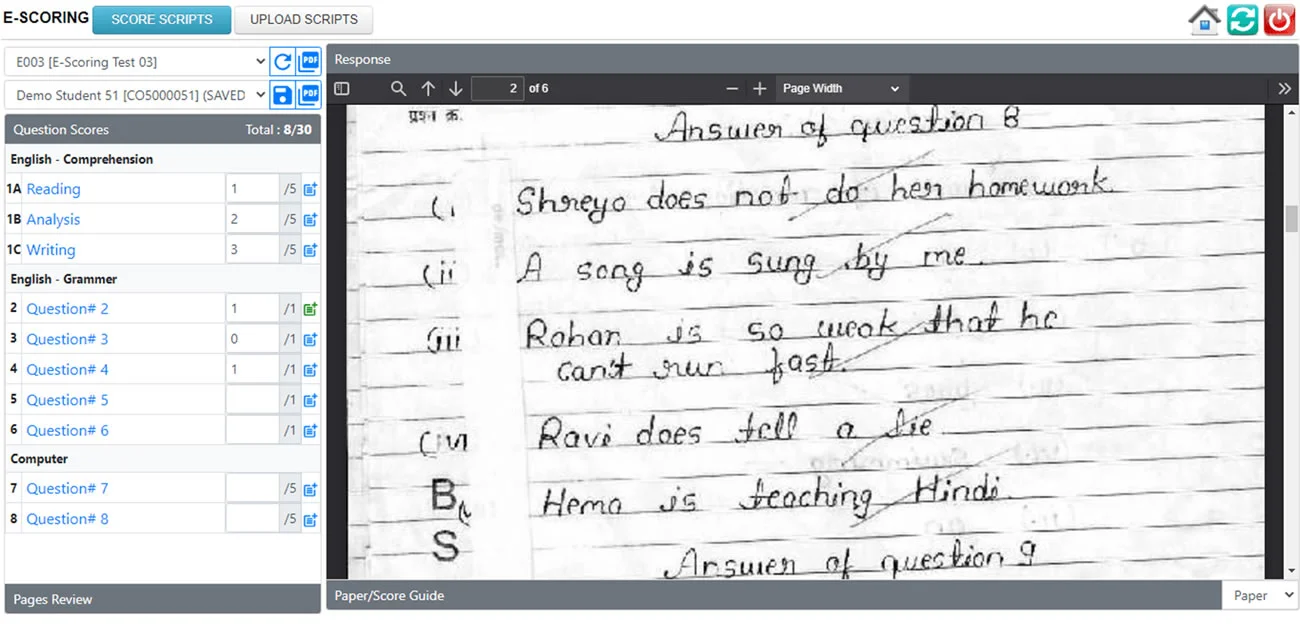 E-SCORING
SCORE SCRIPTS
UPLOAD SCRIPTS
E003 [E-Scoring Test 03]
PDF
Demo Student 51 [CO5000051] (SAVED
PDF
Question Scores
Total : 8/30
English - Comprehension
1A Reading 1 /5
1B Analysis 2 /5
1C Writing 3 /5
English - Grammer
2 Question# 2 1 /1
3 Question# 3 0 /1
4 Question# 4 1 /1
5 Question# 5 /1
6 Question# 6 /1
Computer
7 Question# 7 /5
8 Question# 8 /5
Pages Review
Response
2 of 6
Page Width
प्रश्न क्र.
Answer of question 8
(i Shreya does not do her homework.
(ii A song is sung by me.
(iii Rohan is so weak that he
can't run fast.
(iv Ravi does tell a lie
B Hema is teaching Hindi.
S
Answer of question 9
Paper/Score Guide
Paper